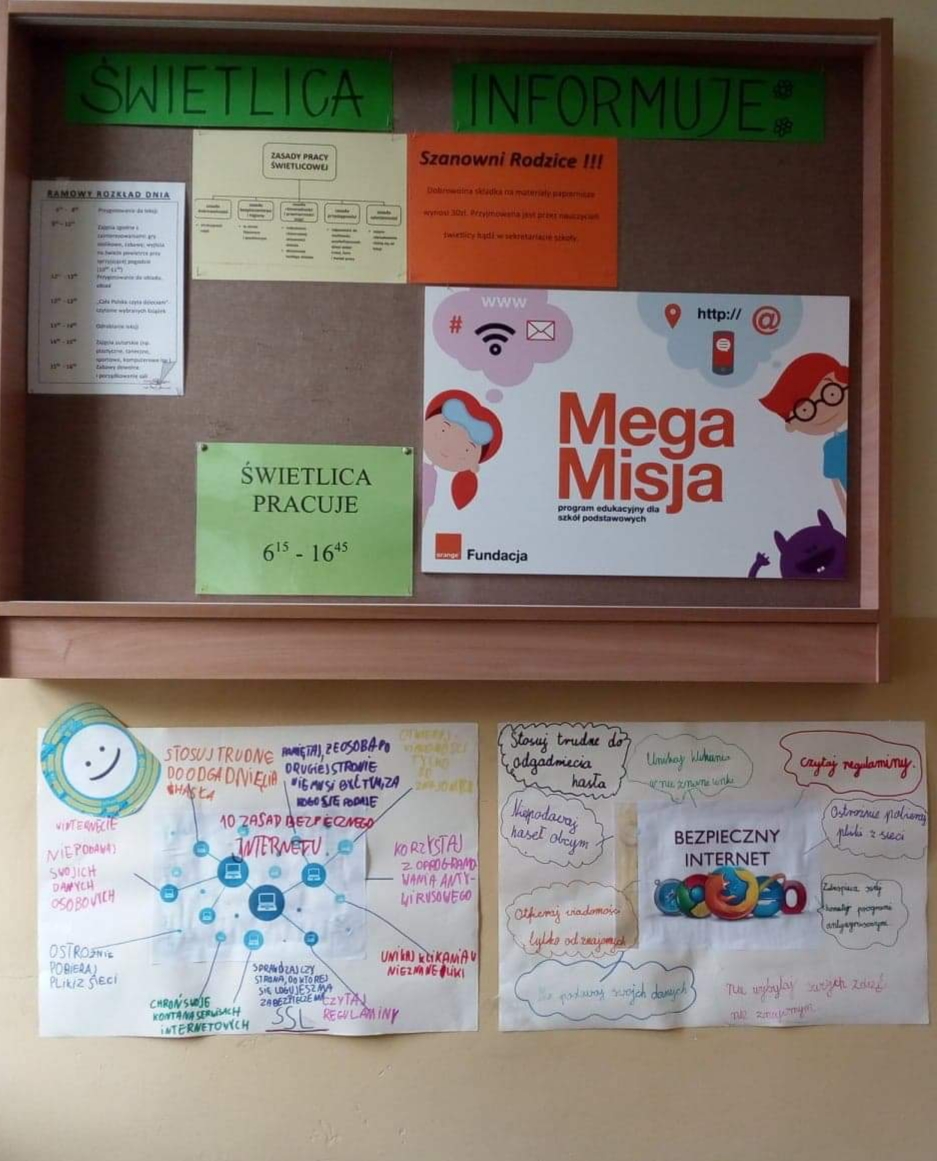 ŚWIETLICA INFORMUJE:
ZASADY PRACY
ŚWIETLICOWEJ
zasada
zasada
zasada
zasada
zasada
Szanowni Rodzice !!!
Dobrowolna składka na materiały papiernicze
wynosi 30zł. Przyjmowana jest przez nauczycieli
świetlicy bądź w sekretariacie szkoły.
RAMOWY ROZKŁAD DNIA
Przygotowanie do lekcji.
Zajęcia zgodne z
zainteresowaniami: gry
stolikowe, zabawy, wyjścia
na świeże powietrze przy
sprzyjającej pogodzie
Przygotowanie do obiadu,
obiad
„Cała Polska czyta dzieciom"-
czytanie wybranych książek
Odrabianie lekcji
Zajęcia
plastyczne, taneczne,
sportowe, komputerowe
Zabawy dowolne
i porządkowanie sali
www
#
http://
@
Mega
Misja
program edukacyjny dla
szkół podstawowych
orange Fundacja
ŚWIETLICA
PRACUJE
6¹⁵ - 16⁴⁵
STOSUJ TRUDNE
DO ODGADNIĘCIA
HASŁA
PAMIĘTAJ, ŻE OSOBA PO
DRUGIEJ STRONIE
NIE MUSI BYĆ TYM, ZA
KOGO SIĘ PODAJE
10 ZASAD BEZPIECZNEGO
INTERNETU
W INTERNECIE
NIE PODAWAJ
SWOICH
DANYCH
OSOBOWYCH
KORZYSTAJ
Z OPROGRAMO
WANIA ANTY-
WIRUSOWEGO
OSTROŻNIE
POBIERAJ
PLIKI Z SIECI
UNIKAJ KLIKANIA W
NIEZNANE LINKI
CHROŃ SWOJE
KONTA NA SERWISACH
INTERNETOWYCH
SPRAWDZAJ CZY
STRONA, DO KTÓREJ
SIĘ LOGUJESZ MA
ZABEZPIECZENIE
SSL
CZYTAJ
REGULAMINY
Stosuj trudne do
odgadnięcia
hasła
Unikaj klikania
w nie znane linki
Czytaj regulaminy.
Niepodawaj
haseł obcym
BEZPIECZNY
INTERNET
Ostrożnie pobieraj
pliki z sieci
Otwieraj wiadomości
tylko od znajomych
Nie podawaj swoich danych
Nie wysyłaj swoich zdjęć
nie znajomym